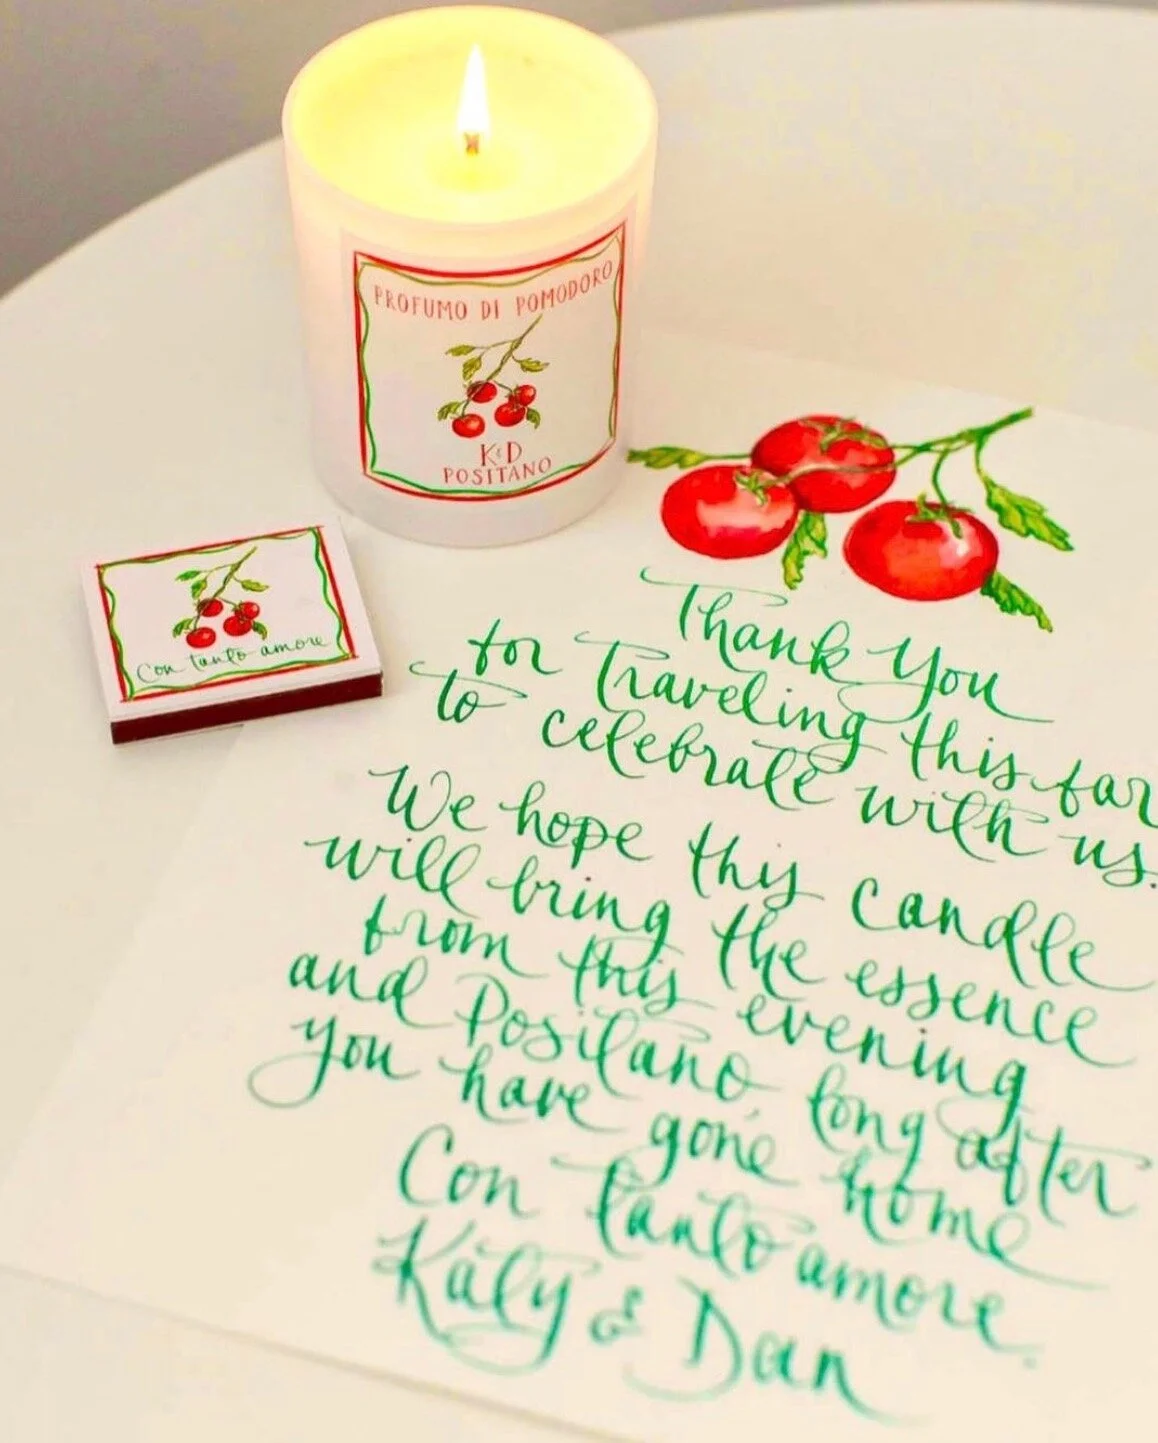 PROFUMO DI POMODORO
K&D
POSITANO
Con tanto amore
Thank you
for traveling this far
to celebrate with us.
We hope this candle
will bring the essence
from this evening
and Positano long after
you have gone home
Con tanto amore.
Katy & Dan